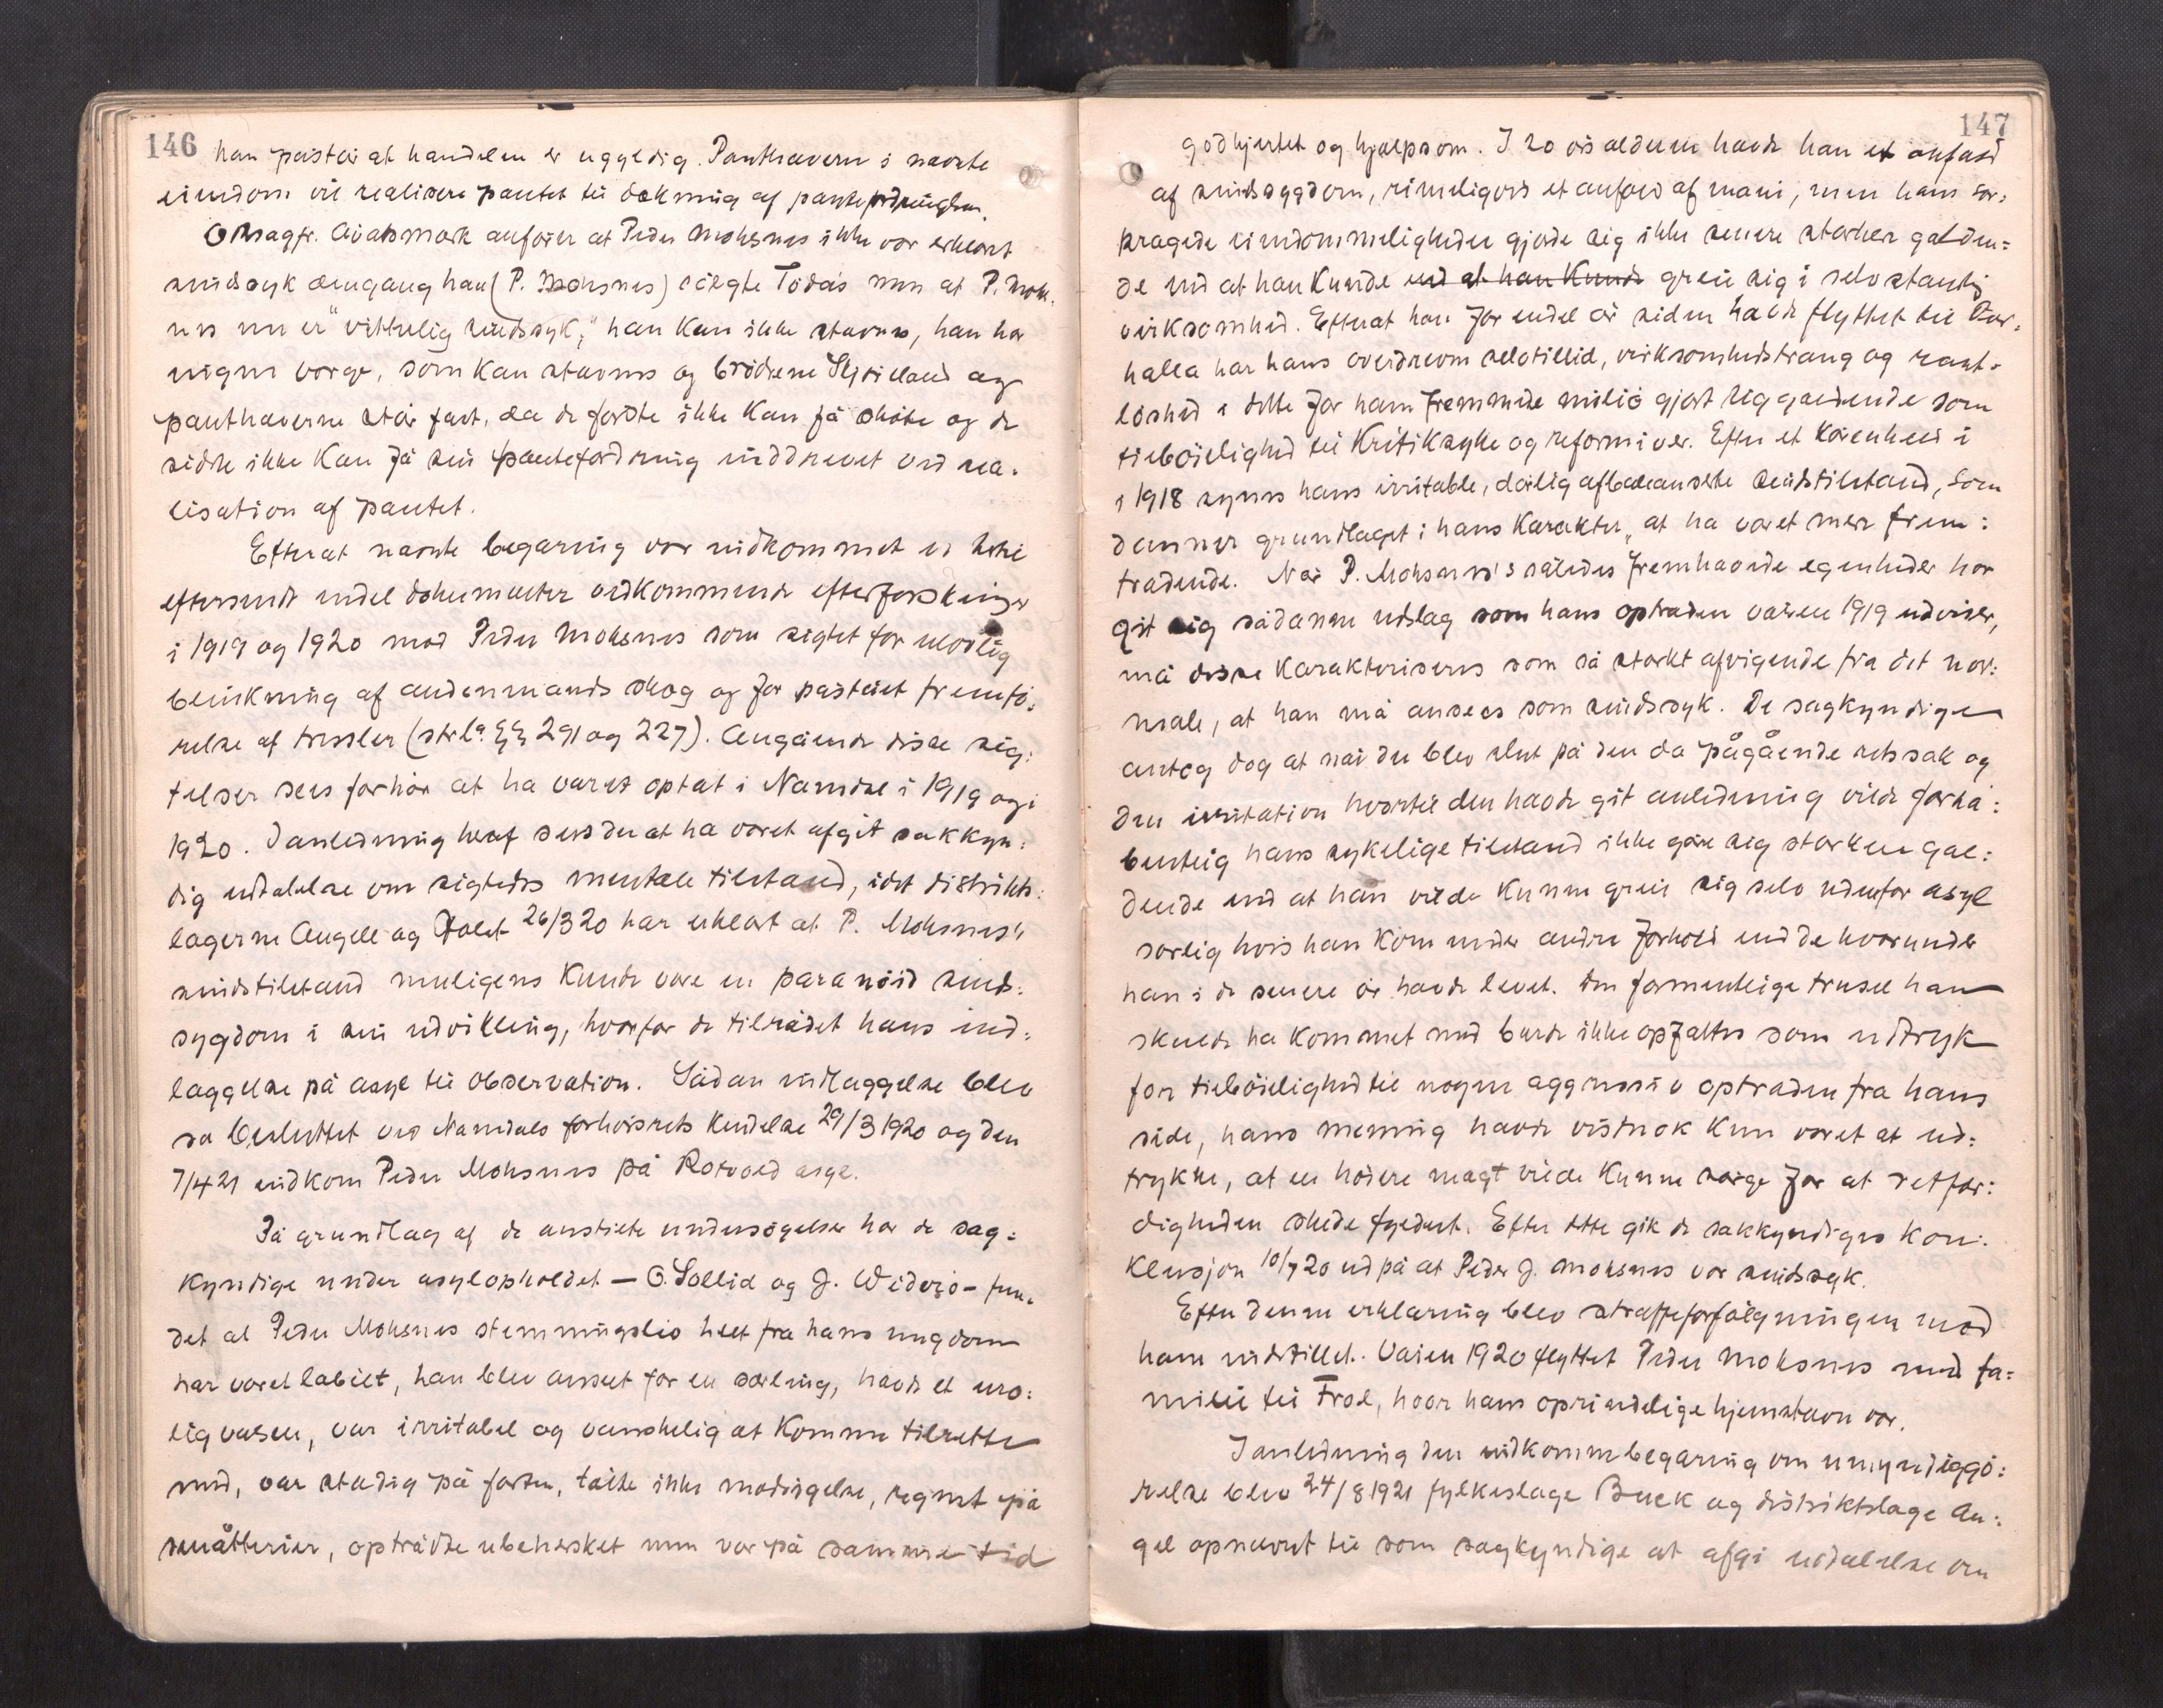 146
han påstår at handelen er ugyldig. Panthavern i nævnte
eiendom vil realisere pantet til dækning af pantefordringen.
Orsagfr. Aavatsmark anfører at Peder Moksnes ikke var erklært
sindssyk dengang han (P. Moksnes) sølgte Tödås men at P. Mok-
nes nu er "vitterlig sindssyk," han kan ikke stevnes, han har
nogen værge, som kan stevnes og brödrene og
panthaverne står fast, da de første ikke kan få skjöte og de
sidste ikke kan få sin pantefordring inddrevet ved rea-
lisation af pantet.
Efterat nævnte begæring var indkommet er hertil
eftersendt endel dokumenter vedkommende efterforskninger
i 1919 og 1920 mod Peder Moksnes som sigtet for ulovlig
blinkning af andenmands skog og for påstået fremfö-
relse af trusler (strl. §§ 291 og 227). Angående disse sig-
telser sees forhör at ha været optat i Namdal i 1919 og i
1920. I anledning heraf sees der at ha været afgit sakkyn-
dig udtalelse om sigtedes mentale tilstand, idet distrikts-
lægerne Angell og 26/3 20 har erklært at P. Moksnes's
sindstilstand muligens kunde være en paranoid sinds-
sygdom i sin udvikling, hvorfor de tilrådet hans ind-
læggelse på asyl til observation. Sådan indlæggelse blev
så besluttet ved Namdals forhörsrets kendelse 29/3 1920 og den
7/4 21 indkom Peder Moksnes på Rotvold asyl.
På grundlag af de anstilte undersøgelser har de sag-
kyndige under asylopholdet — O. Sollid og J. — fun-
det at Peder Moksnes stemningsliv helt fra hans ungdom
har været labilt, han blev anseet for en særling, havde et uro-
lig væsen, var irritabel og vanskelig at komme tilrette
med, var stadig på farten, tålte ikke modsigelse, på
småtterier, optrådte ubehersket men var på samme tid
147
godhjertet og hjælpsom. I 20 års alderen havde han et anfald
af sindssygdom, rimeligvis et anfald af mani, men hans sær-
prægede eiendommeligheder gjorde sig ikke senere stærkere gælden-
de end at han kunde end at han kunde greie sig i selvstændig
virksomhed. Efterat han for endel år siden havde flyttet til Vær-
halla har hans overdrevne selvtillid, virksomhedstrang og rast-
löshed i dette for ham fremmede miliö gjort sig gældende som
tilböielighed til kritiksyke og reformiver. Efter et i
i 1918 synes hans irritable, dårlig afbalanserte sindstilstand, som
danner grundlaget i hans karakter, at ha været mere frem-
trædende. Når P. Moksnes's således fremhævede egenheder har
git sig sådanne udslag som hans optræden våren 1919 udviser,
må disse karakteriseres som så stærkt afvigende fra det nor-
male, at han må ansees som sindssyk. De sagkyndige
antog dog at når der blev slut på den da pågående retssak og
den irritation hvortil den havde git anledning vilde forhå-
bentlig hans sykelige tilstand ikke göre sig stærkere gæl-
dende end at han vilde kunne greie sig selv udenfor asyl
særlig hvis han kom under andre forhold end de hvorunder
han i de senere år havde levet. Den formentlige trusel han
skulde ha kommet med burde ikke opfattes som udtryk
for tilböielighed til nogen aggressiv optræden fra hans
side, hans mening havde vistnok kun været at ud-
trykke, at en höiere magt vilde kunne sörge for at retfær-
digheden skede fyldest. Efter dette gik de sakkyndiges kon-
klusjon 10/7 20 ud på at Peder J. Moksnes var sindssyk.
Efter denne erklæring blev straffeforfölgningen mod
ham indstillet. Våren 1920 flyttet Peder Moksnes med fa-
milie til Frol, hvor hans oprindelige hjemstavn var.
I anledning den indkomne begæring om umyndiggö-
relse blev 24/8 1921 fylkeslæge Buck og distriktslæge An-
gel opnævnt til som sagkyndige at afgi udtalelse om